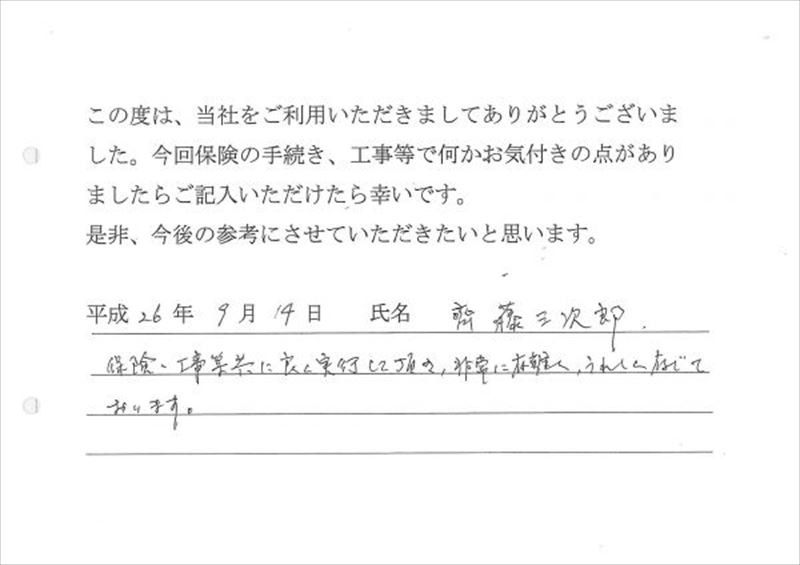 この度は、当社をご利用いただきましてありがとうございま
した。今回保険の手続き、工事等で何かお気付きの点があり
ましたらご記入いただけたら幸いです。
是非、今後の参考にさせていただきたいと思います。
平成26年 9月14日 氏名 齊藤三次郎
保険、工事業共に良く実行して頂き、非常に有難く、うれしく存じて
おります。